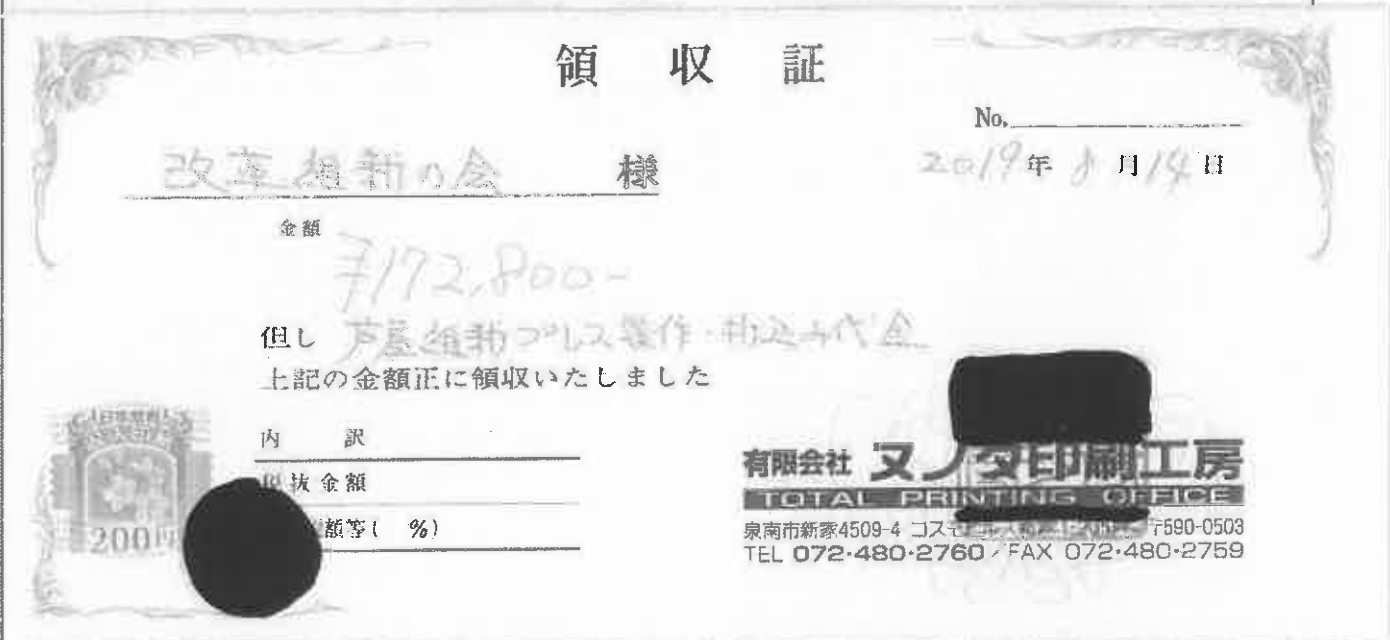 領収証
No.
改革維新の会 様
2019年 8月14日
金額
¥172,800-
但し 芦屋維新プレス製作・折込み代金
上記の金額正に領収いたしました
内 訳
税抜金額
額等( %)
200円
有限会社 ヌノタ印刷工房
TOTAL PRINTING OFFICE
泉南市新家4509-4 〒590-0503
TEL 072・480・2760/FAX 072・480・2759